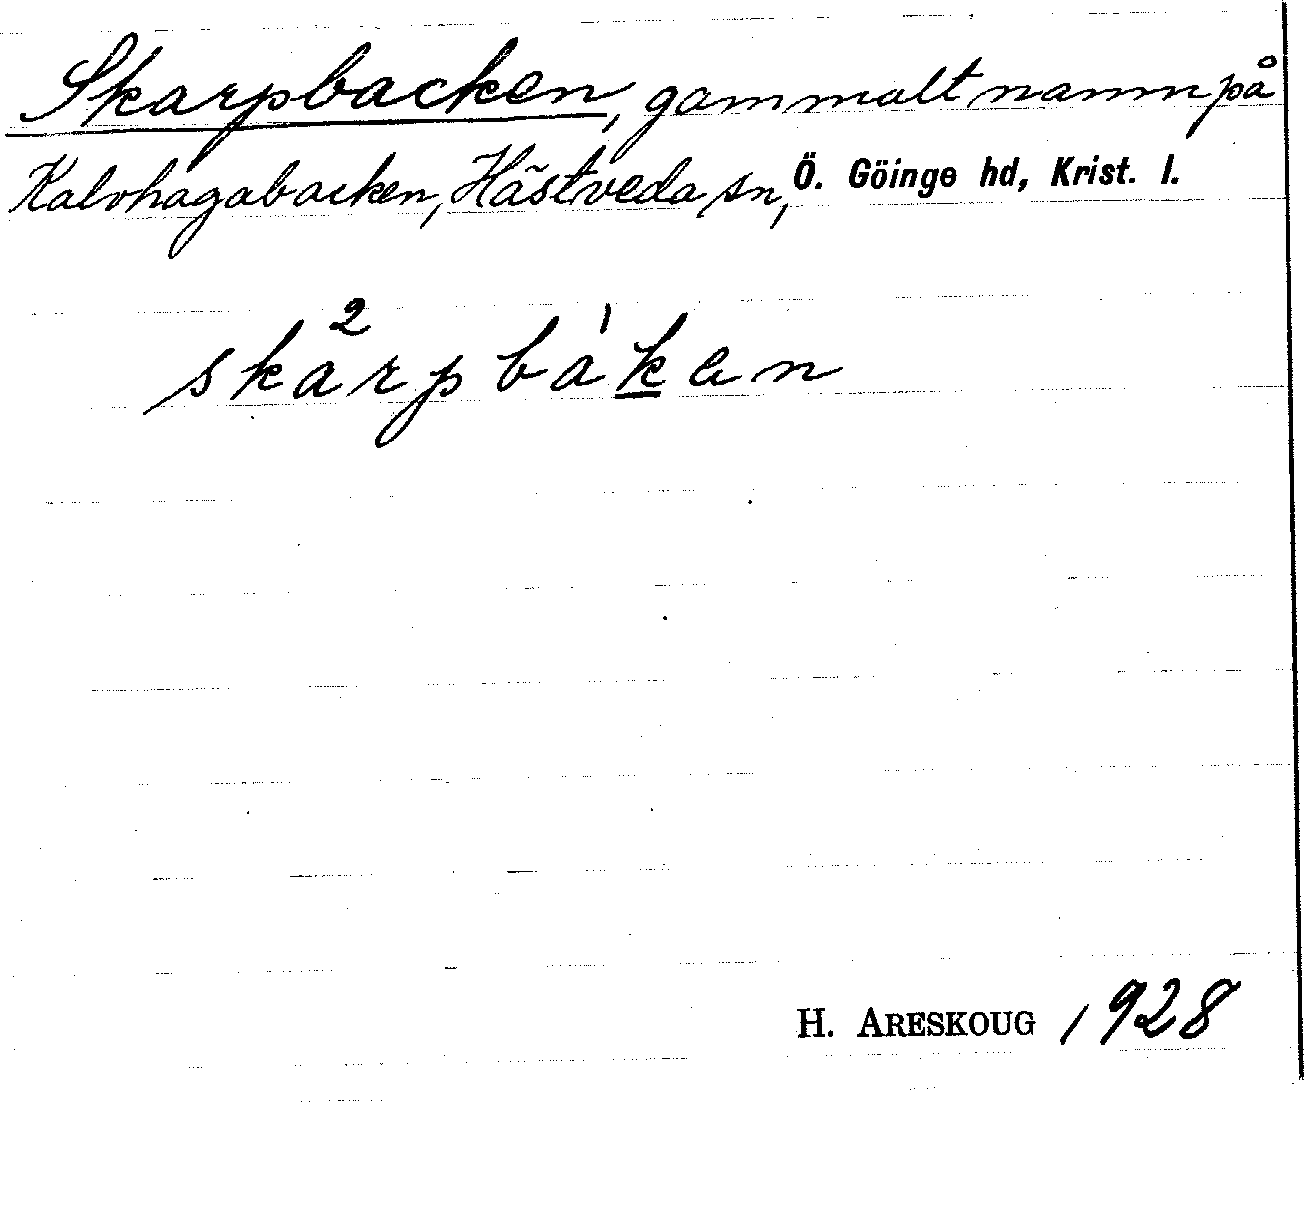 Skarpbacken, gammalt namn på
Kalvhagabacken, Hästveda sn, Ö. Göinge hd, Krist. l.
2 1
skarpbaken
H. ARESKOUG 1928